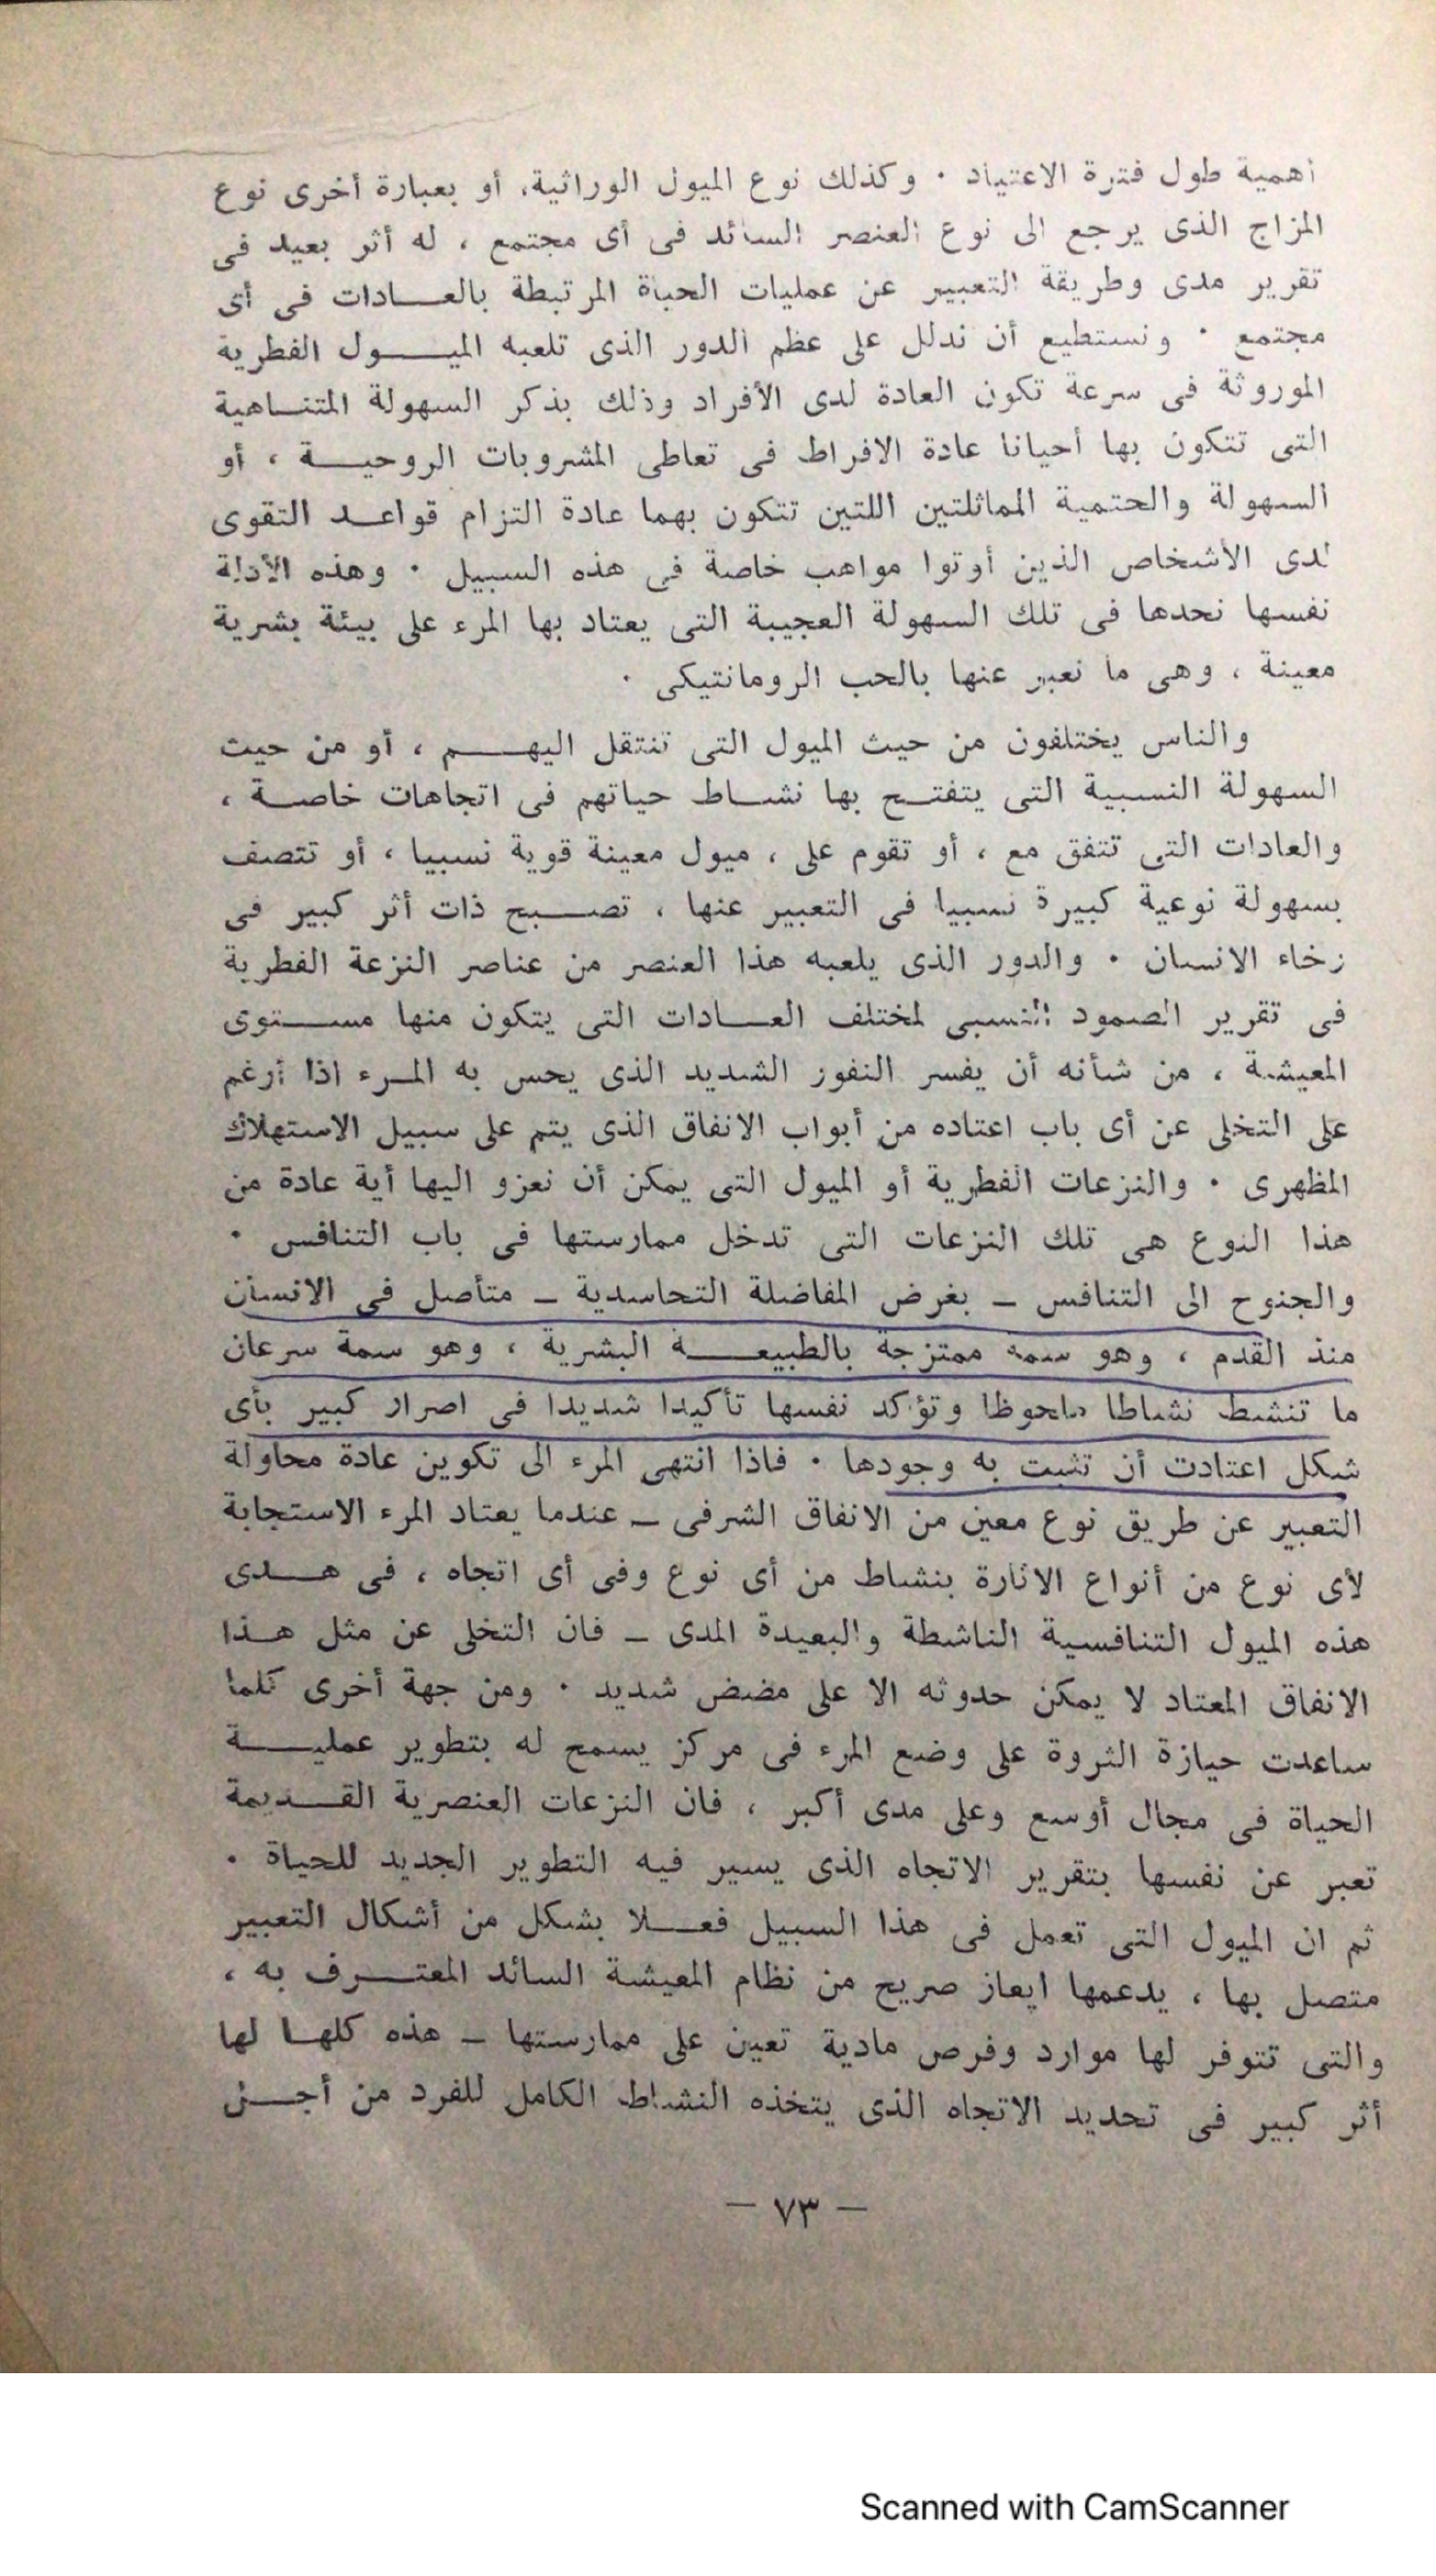 أهمية طول فترة الاعتياد · وكذلك نوع الميول الوراثية، أو بعبارة أخرى نوع
المزاج الذى يرجع الى نوع العنصر السائد فى أى مجتمع ، له أثر بعيد فى
تقرير مدى وطريقة التعبير عن عمليات الحياة المرتبطة بالعادات فى أى
مجتمع · ونستطيع أن ندلل على عظم الدور الذى تلعبه الميول الفطرية
الموروثة فى سرعة تكون العادة لدى الأفراد وذلك بذكر السهولة المتناهية
التى تتكون بها أحيانا عادة الافراط فى تعاطى المشروبات الروحية ، أو
السهولة والحتمية المماثلتين اللتين تتكون بهما عادة التزام قواعد التقوى
لدى الأشخاص الذين أوتوا مواهب خاصة فى هذه السبيل · وهذه الأدلة
نفسها نجدها فى تلك السهولة العجيبة التى يعتاد بها المرء على بيئة بشرية
معينة ، وهى ما نعبر عنها بالحب الرومانتيكى ·
والناس يختلفون من حيث الميول التى تنتقل اليهم ، أو من حيث
السهولة النسبية التى يتفتح بها نشاط حياتهم فى اتجاهات خاصة ،
والعادات التى تتفق مع ، أو تقوم على ، ميول معينة قوية نسبيا ، أو تتصف
بسهولة نوعية كبيرة نسبيا فى التعبير عنها ، تصبح ذات أثر كبير فى
رخاء الانسان · والدور الذى يلعبه هذا العنصر من عناصر النزعة الفطرية
فى تقرير الصمود النسبى لمختلف العادات التى يتكون منها مستوى
المعيشة ، من شأنه أن يفسر النفور الشديد الذى يحس به المرء اذا أرغم
على التخلى عن أى باب اعتاده من أبواب الانفاق الذى يتم على سبيل الاستهلاك
المظهرى · والنزعات الفطرية أو الميول التى يمكن أن نعزو اليها أية عادة من
هذا النوع هى تلك النزعات التى تدخل ممارستها فى باب التنافس ·
والجنوح الى التنافس – بغرض المفاضلة التحاسدية – متأصل فى الانسان
منذ القدم ، وهو سمة ممتزجة بالطبيعة البشرية ، وهو سمة سرعان
ما تنشط نشاطا ملحوظا وتؤكد نفسها تأكيدا شديدا فى اصرار كبير بأى
شكل اعتادت أن تثبت به وجودها · فاذا انتهى المرء الى تكوين عادة محاولة
التعبير عن طريق نوع معين من الانفاق الشرفى – عندما يعتاد المرء الاستجابة
لأى نوع من أنواع الاثارة بنشاط من أى نوع وفى أى اتجاه ، فى هدى
هذه الميول التنافسية الناشطة والبعيدة المدى – فان التخلى عن مثل هذا
الانفاق المعتاد لا يمكن حدوثه الا على مضض شديد · ومن جهة أخرى كلما
ساعدت حيازة الثروة على وضع المرء فى مركز يسمح له بتطوير عملية
الحياة فى مجال أوسع وعلى مدى أكبر ، فان النزعات العنصرية القديمة
تعبر عن نفسها بتقرير الاتجاه الذى يسير فيه التطوير الجديد للحياة ·
ثم ان الميول التى تعمل فى هذا السبيل فعلا بشكل من أشكال التعبير
متصل بها ، يدعمها ايعاز صريح من نظام المعيشة السائد المعترف به ،
والتى تتوفر لها موارد وفرص مادية تعين على ممارستها – هذه كلها لها
أثر كبير فى تحديد الاتجاه الذى يتخذه النشاط الكامل للفرد من أجل
– ٧٣ –
Scanned with CamScanner